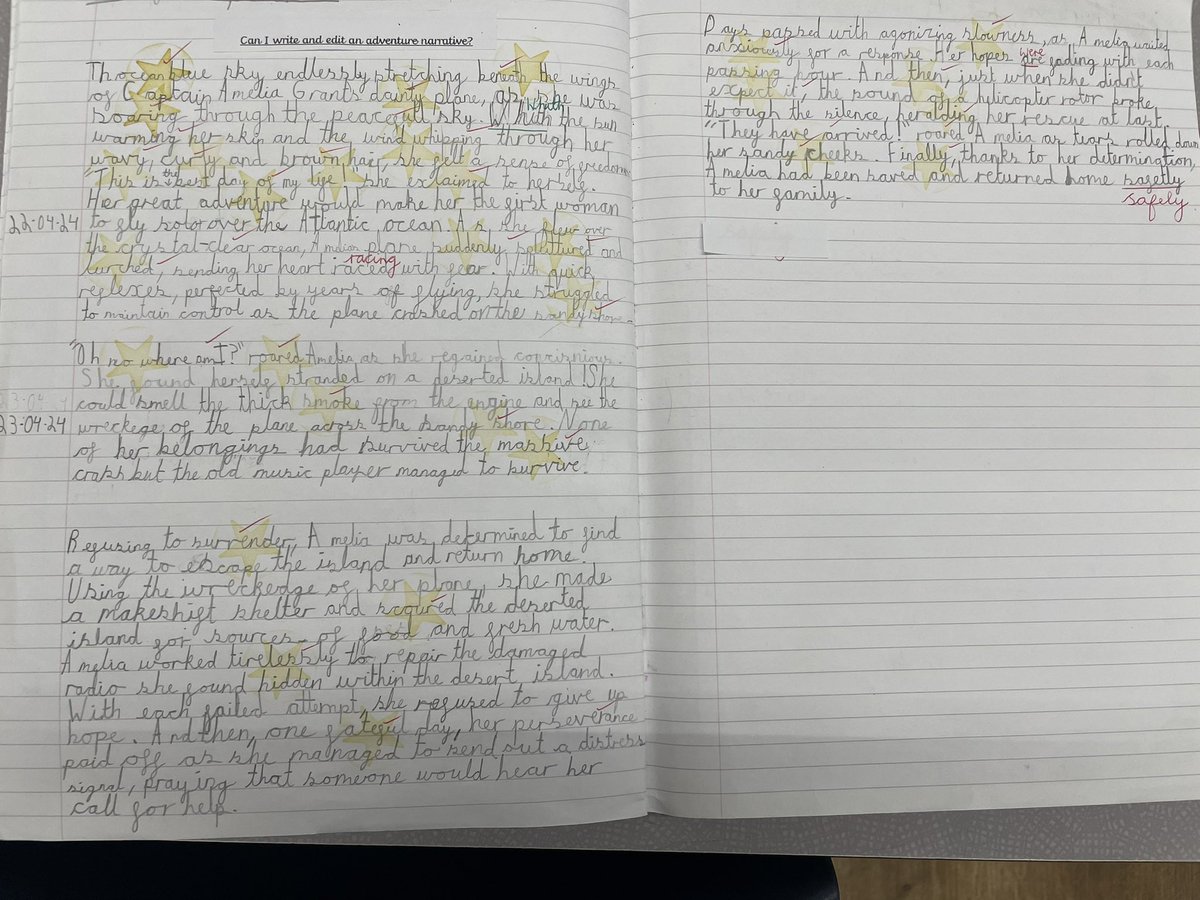 Can I write and edit an adventure narrative?
blue sky endlessly stretching the wings
of Captain Amelia Grants dainty plane, as she was
soaring through the sky. With the sun
warming her skin and the wind whipping through her
wavy, curly and brown hair, she felt a sense of freedom.
"This is the best day of my life" she exclaimed to herself.
Her great adventure would make her the first woman
22-04-24 to fly solo over the Atlantic ocean. As she flew over
the crystal-clear ocean, plane suddenly and
lurched, sending her heart raced racing with fear. With quick
reflexes, perfected by years of flying, she struggled
to maintain control as the plane crashed on the sandy shore.
"Oh no where am I?" roared Amelia as she regained
She found herself stranded on a deserted island! She
could smell the thick smoke from the engine and see the
23-04-24 wreckege of the plane across the sandy shore. None
of her belongings had survived the massive
crash but the old music player managed to survive.
Refusing to surrender, Amelia was determined to find
a way to escape the island and return home.
Using the wreckedge of her plane, she made
a makeshift shelter and the deserted
island for sources of food and fresh water.
Amelia worked tirelessly to repair the damaged
radio she found hidden within the desert island.
With each failed attempt, she refused to give up
hope. And then, one fateful day, her perseverance
paid off as she managed to send out a distress
signal, praying that someone would hear her
call for help.
Days passed with agonizing slowness, as Amelia waited
anxiously for a response. Her hopes are were fading with each
passing hour. And then, just when she didn't
expect it, the sound of a helicopter rotor broke
through the silence, heralding her rescue at last.
"They have arrived!" roared Amelia as tears rolled down
her sandy cheeks. Finally, thanks to her determination,
Amelia had been saved and returned home safetly
to her family. safely